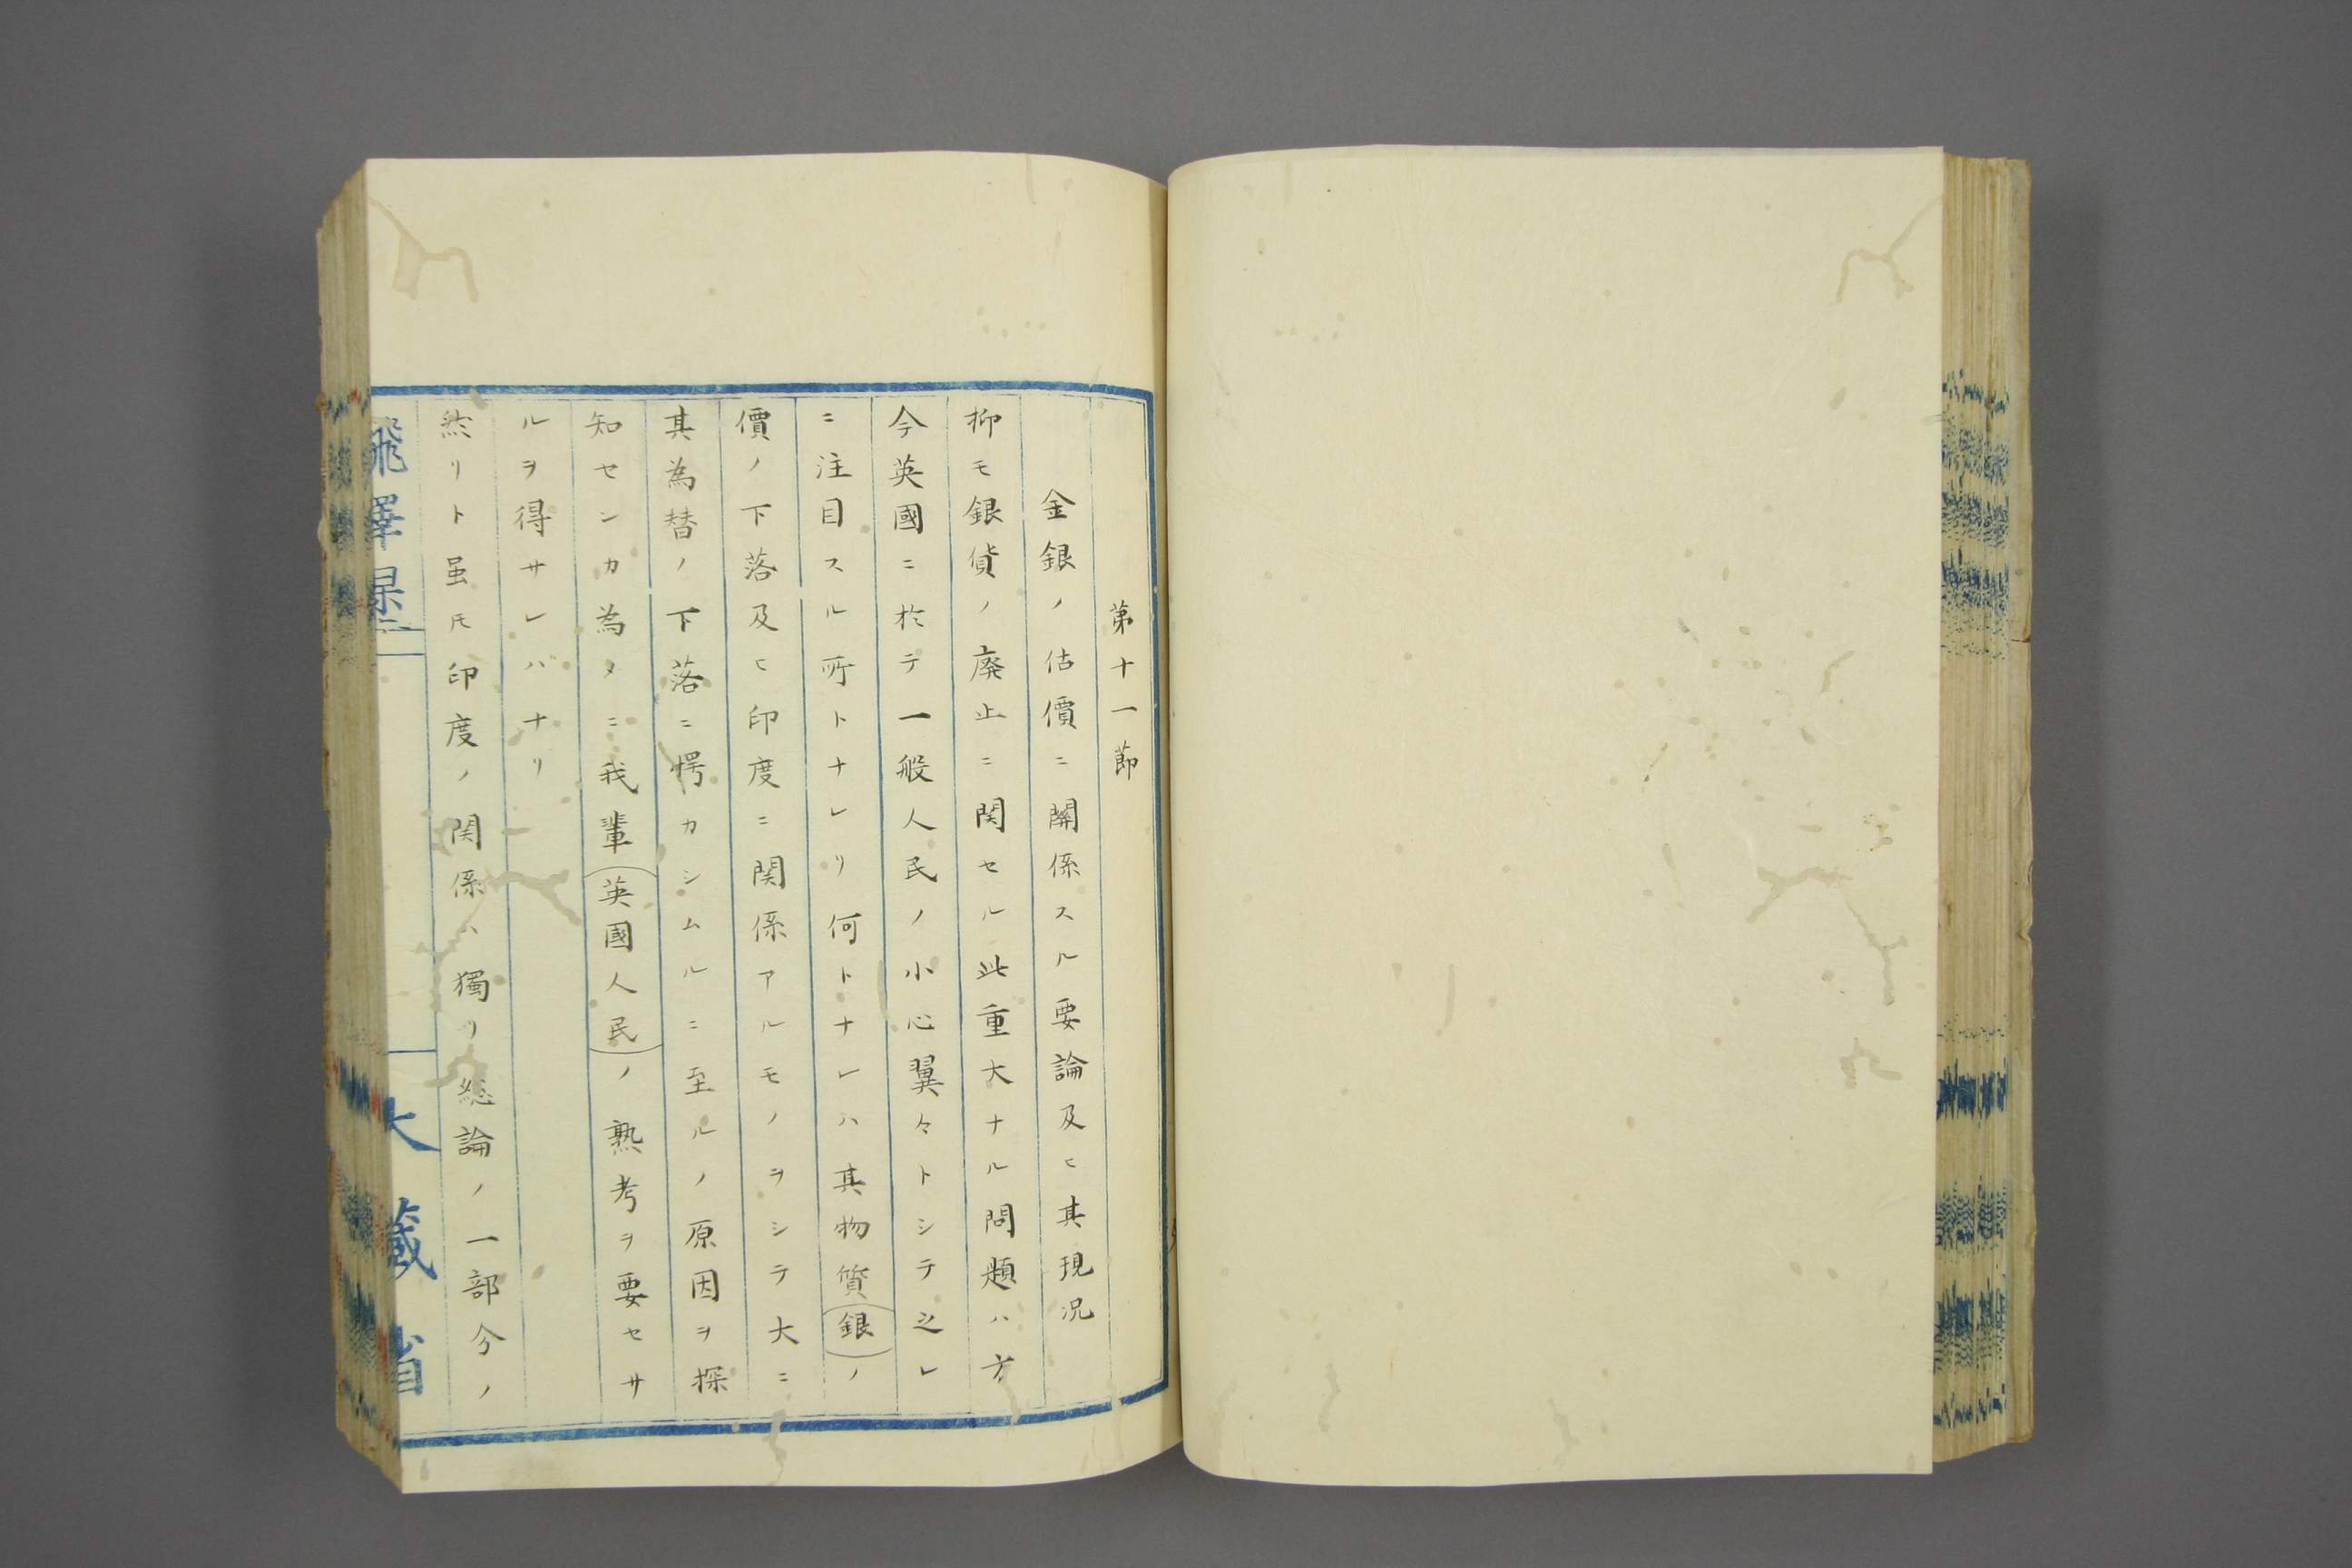 第十一節
金銀ノ估價ニ關係スル要論及ヒ其現況
抑モ銀貨ノ廃止ニ関セル此重大ナル問題ハ方
今英國ニ於テ一般人民ノ小心翼々トシテ之レ
ニ注目スル所トナレリ何トナレハ其物質(銀)ノ
價ノ下落及ヒ印度ニ関係アルモノヲシテ大ニ
其為替ノ下落ニ愕カシムルニ至ルノ原因ヲ探
知センカ為メニ我輩(英國人民)ノ熟考ヲ要セサ
ルヲ得サレハナリ
然リト虽𪜈印度ノ関係ハ獨リ総論ノ一部分ノ
大藏省